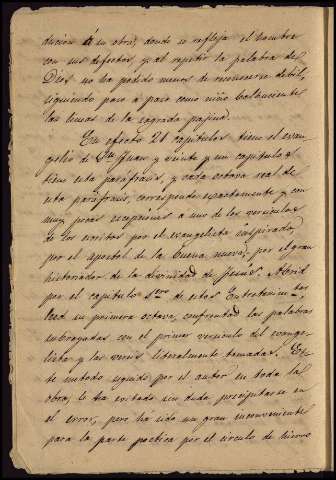 ducion á su obra, donde se refleja el hombre
con sus defectos, y al repetir la palabra de
Dios no ha podido menos de reconocerse debil,
siguiendo paso a paso como niño balbuciente
las lineas de la sagrada pajina.
En efecto 21 capitulos tiene el evan-
gelio de Sn Juan y veinte y un capitulos
tiene esta paráfrasis, y cada octava real de
esta paráfrasis, corresponde exactamente y con
muy pocas escepciones a uno de los versiculos
de los escritos por el evangelista inspirado,
por el apostol de la buena nueva, por el gran
historiador de la divinidad de Jesus. Abrid
por el capitulo 1ero de estos Entretenimientos,
leed su primera octava, confrontad las palabras
subrayadas con el primer versiculo del evange-
lista y las vereis literalmente tomadas. Es-
te metodo seguido por el autor en toda la
obra, le ha evitado sin duda precipitarse en
el error, pero ha sido un gran inconveniente
para la parte poetica por el circulo de hierro